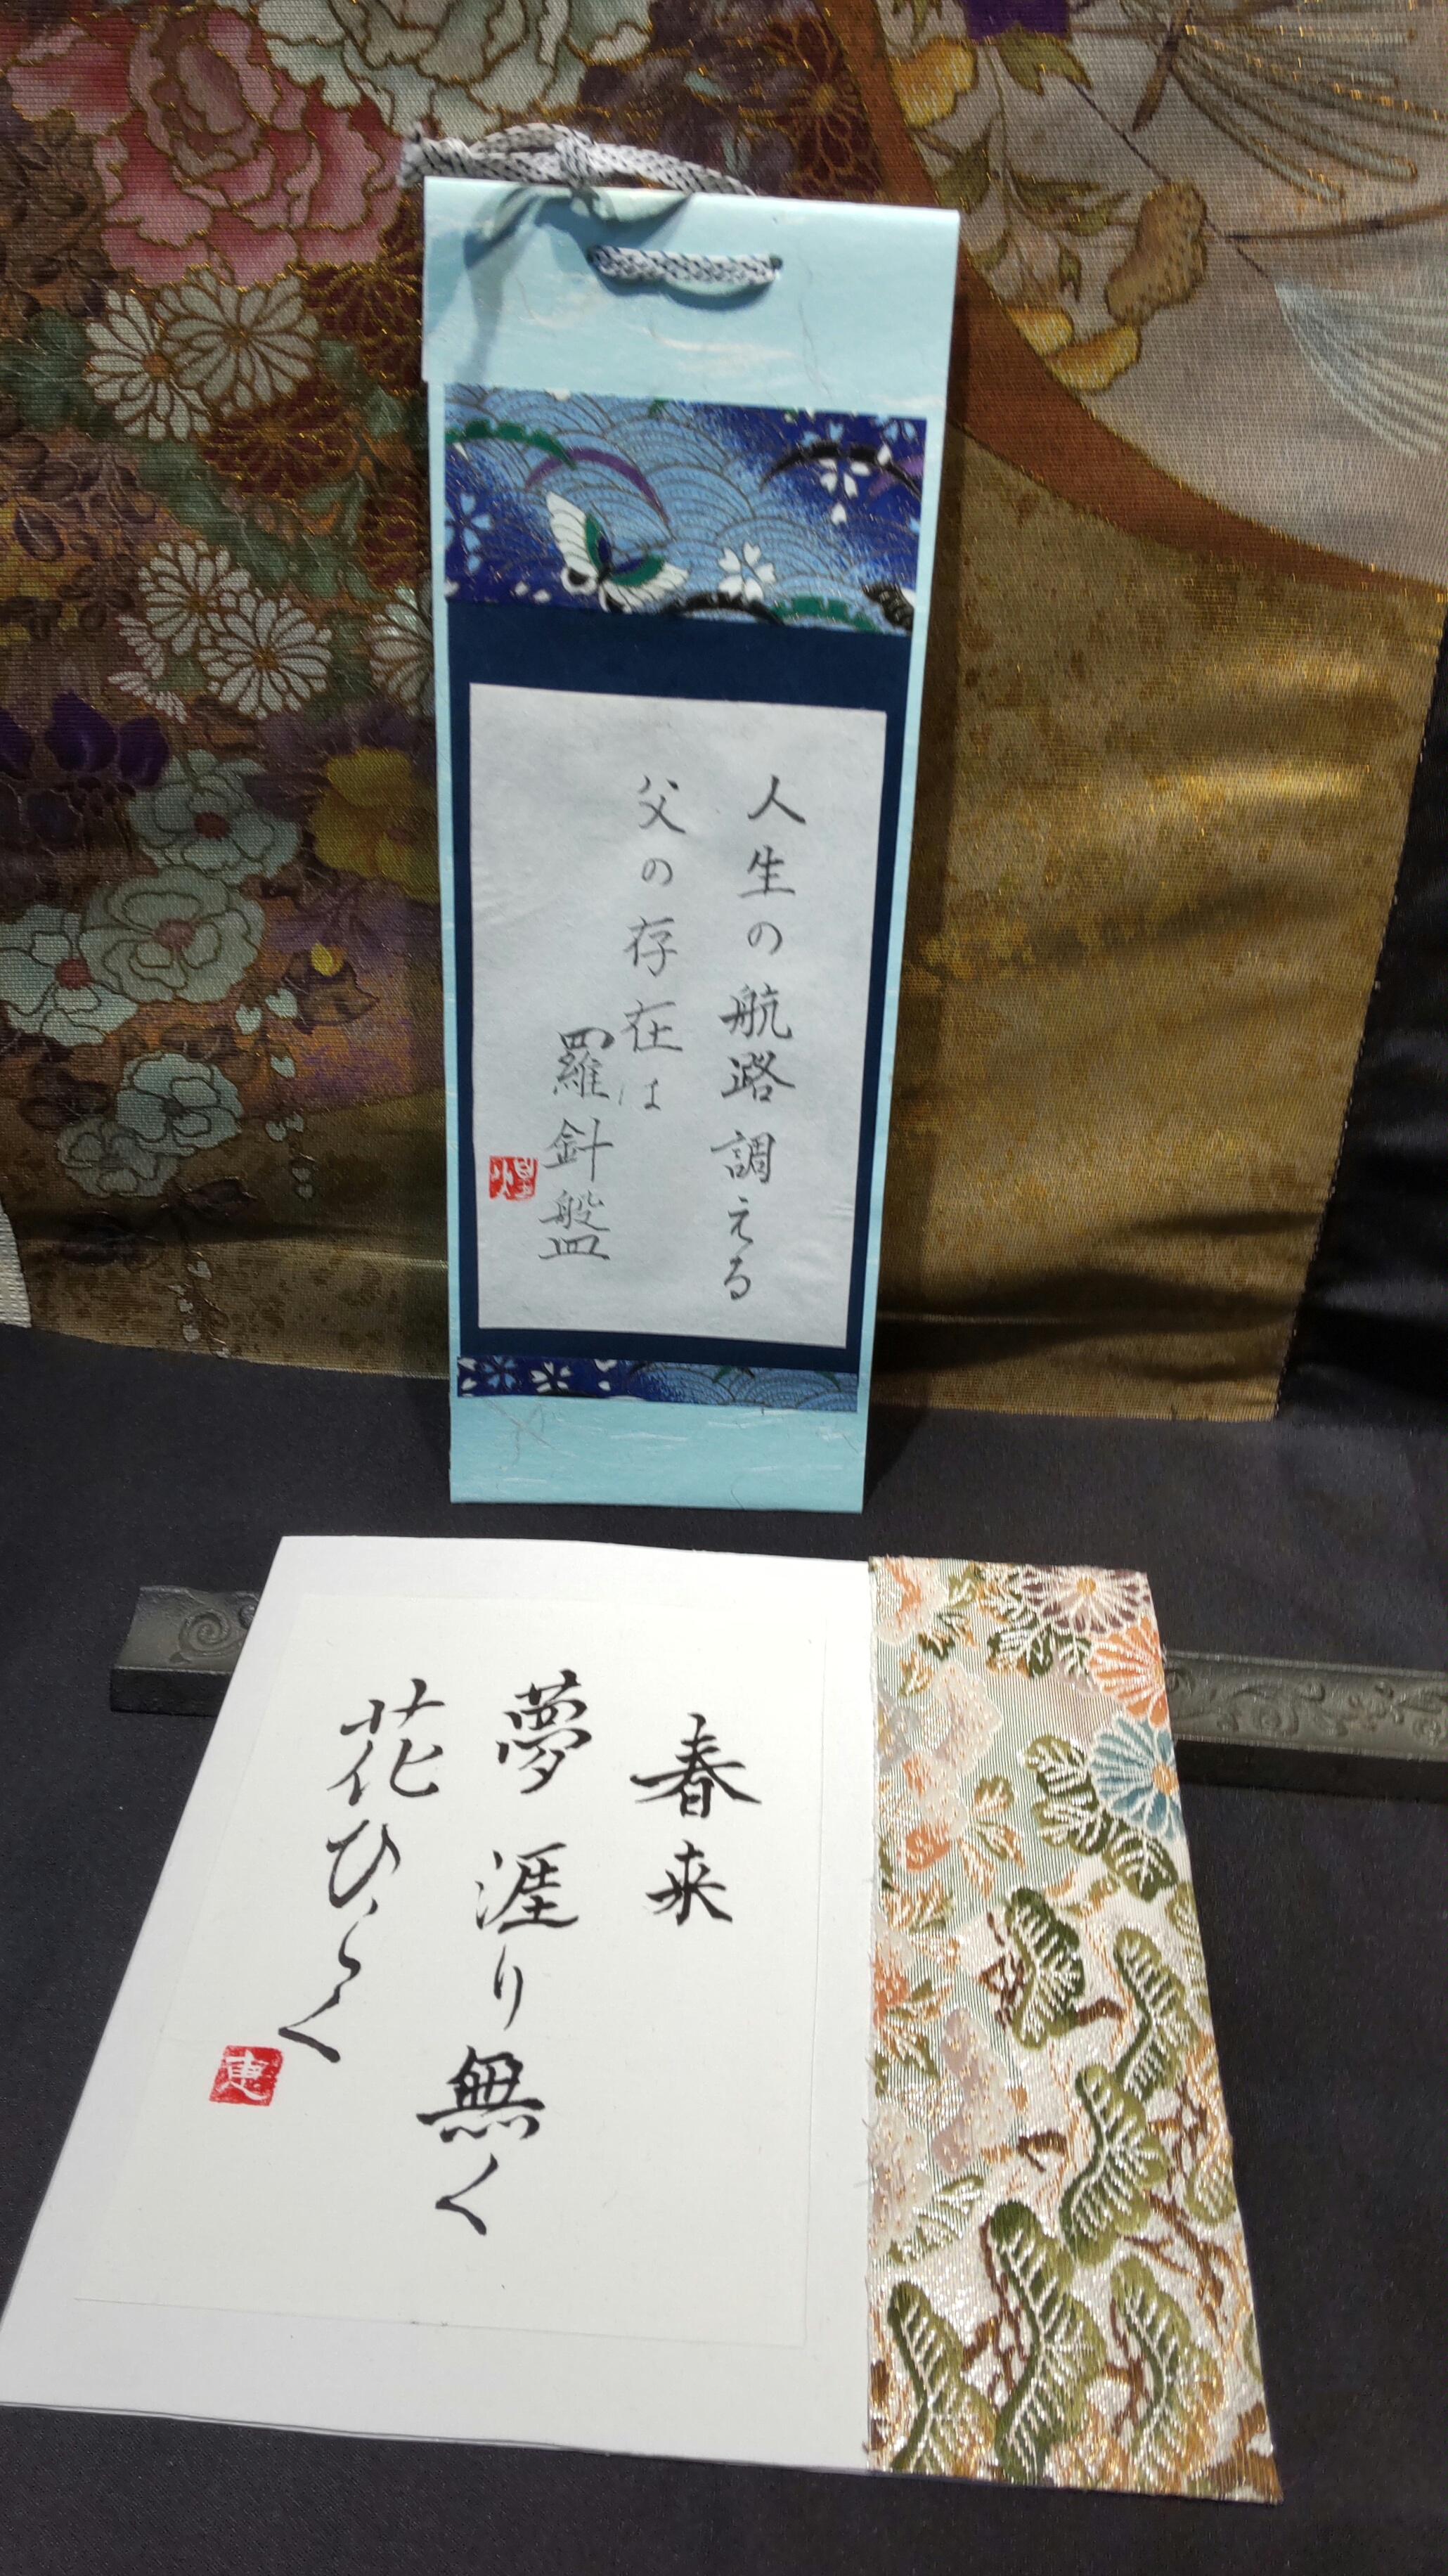 人生の航路調える
父の存在は
羅針盤
煌
春来
夢涯り無く
花ひらく
恵